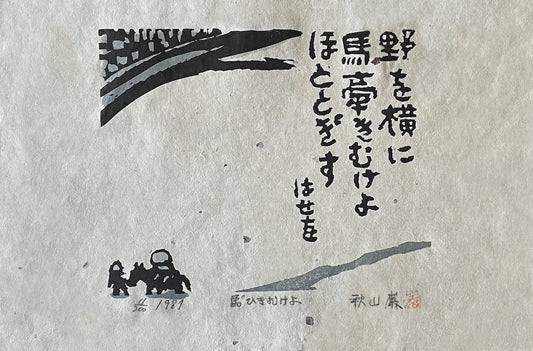 野を横に
馬牽きむけよ
ほとゝぎす
はせを
4/200 1987
馬ひきむけよ
秋山巌